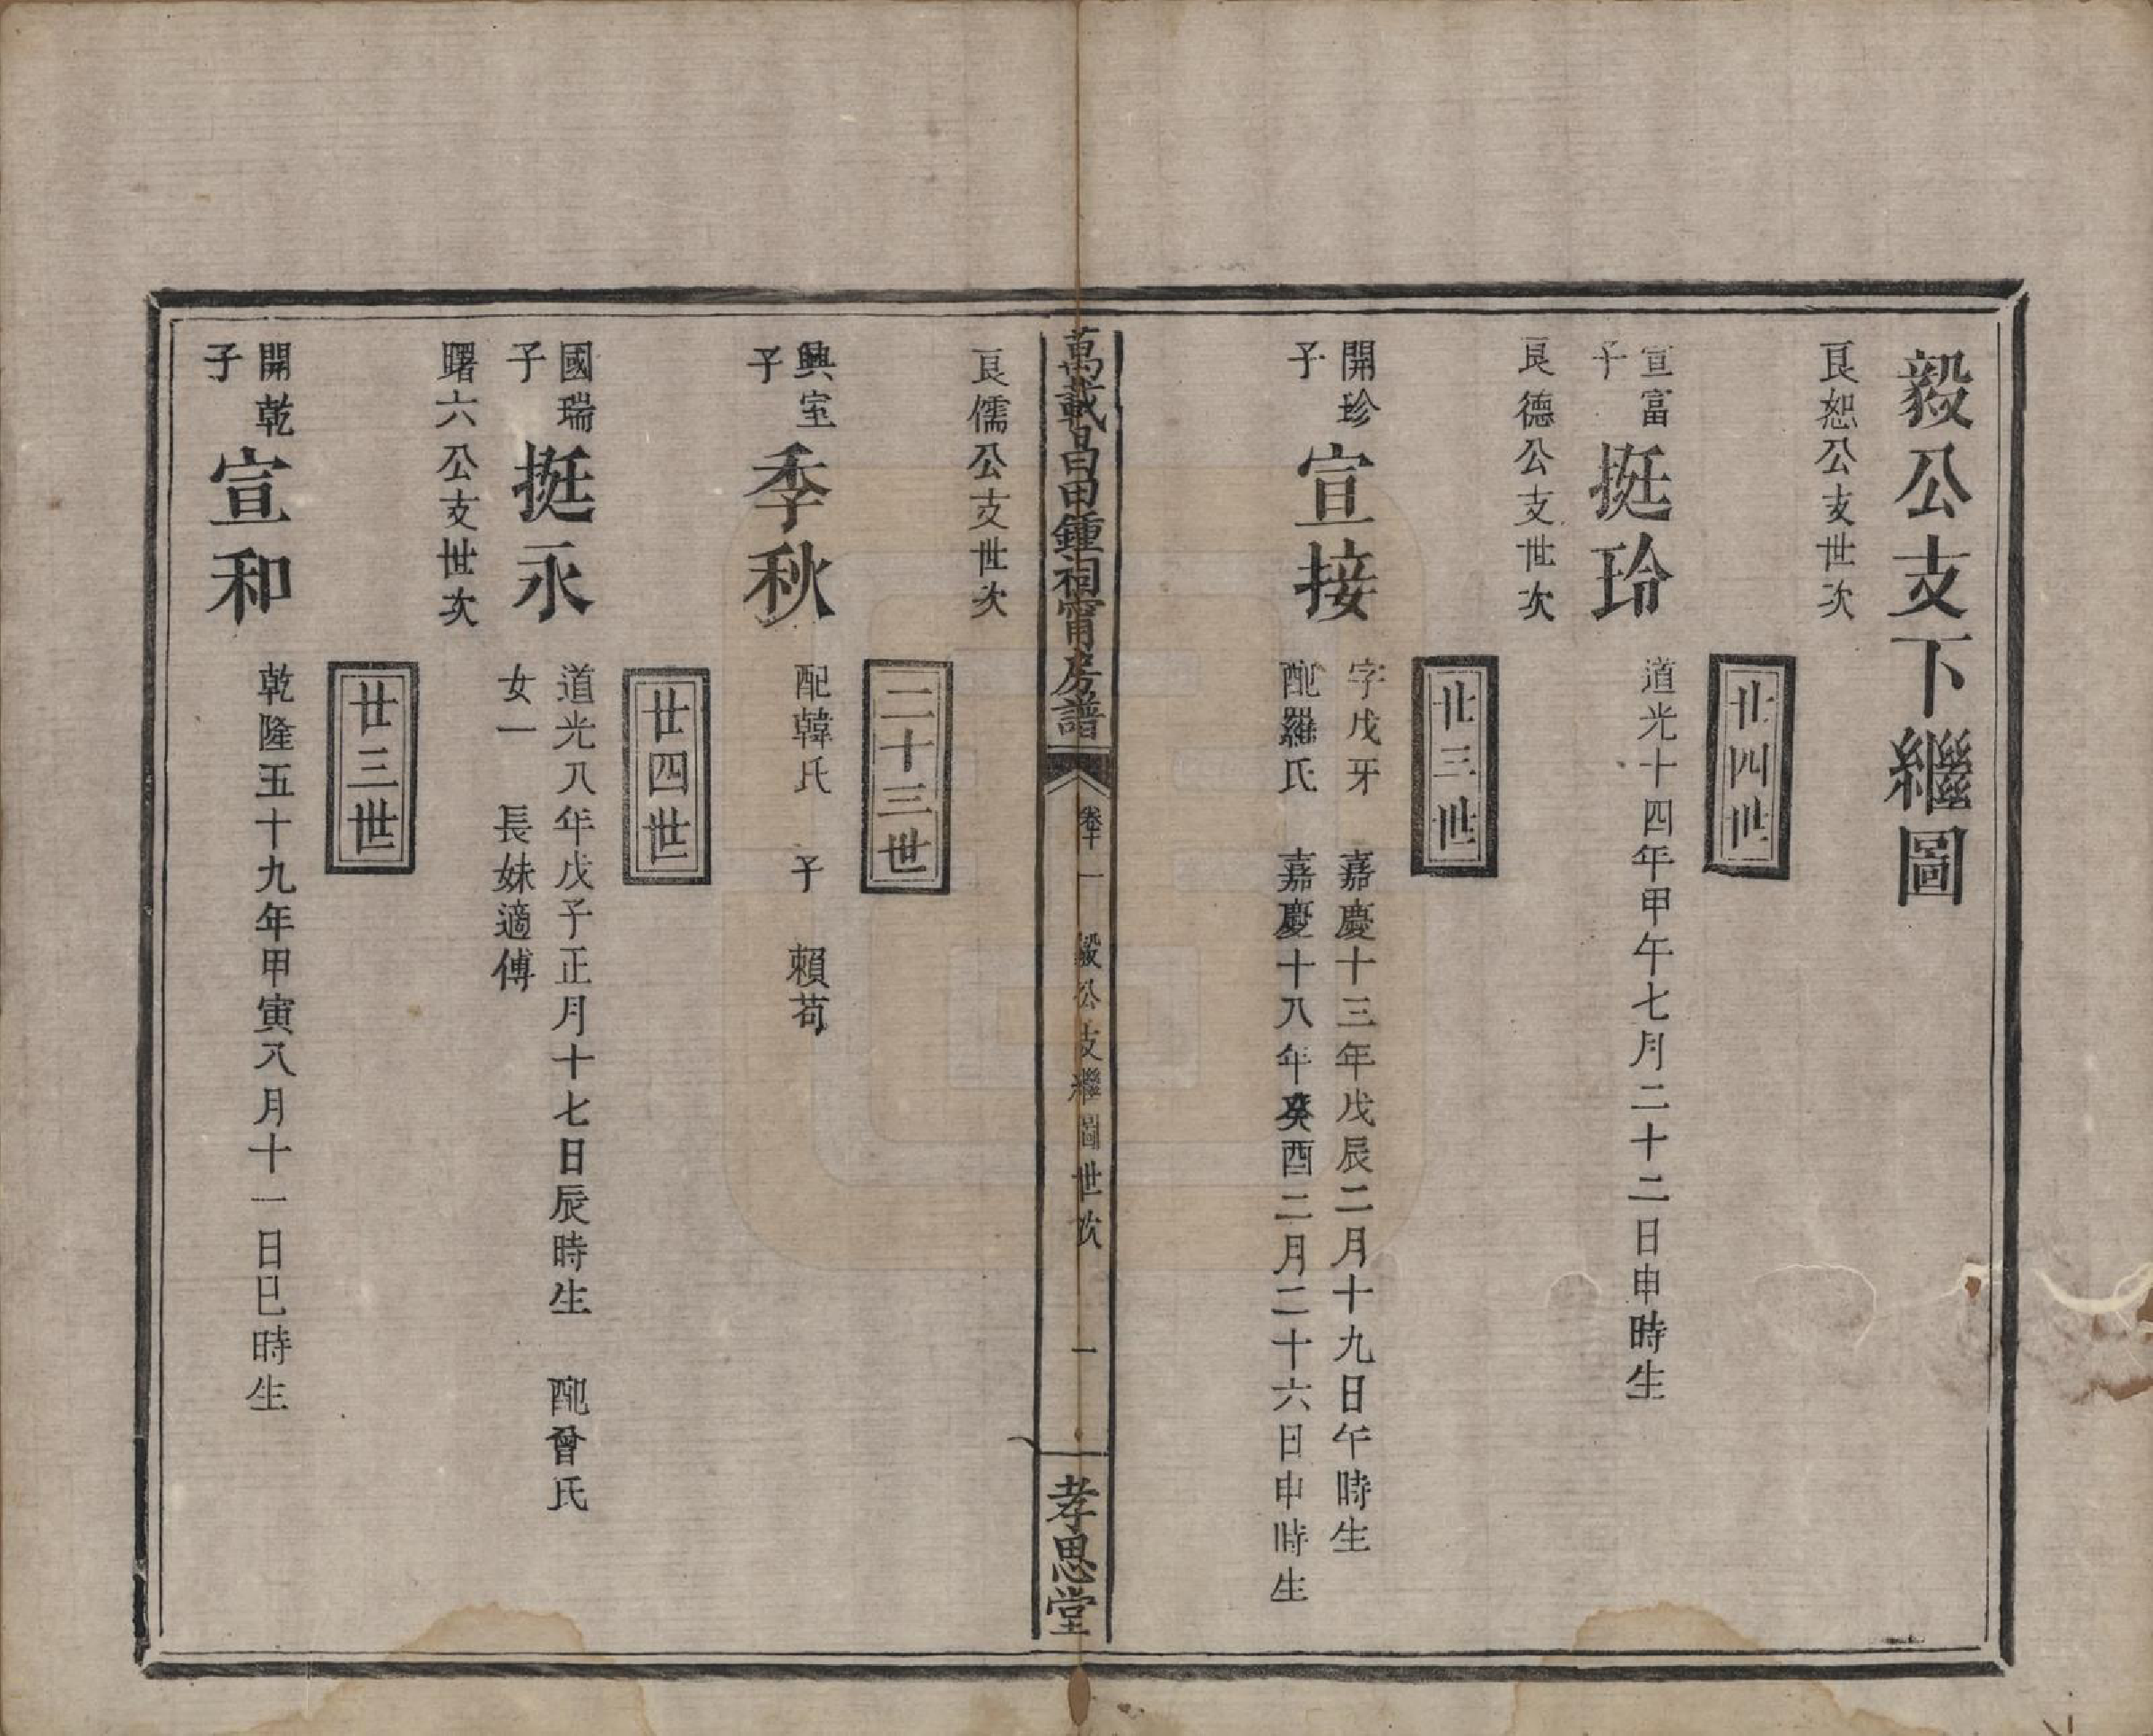 毅公支下繼圖
良恕公支世次
廿四世
宣富子
挺玲
道光十四年甲午七月二十二日申時生
良德公支世次
廿三世
開珍子
宣接
字戊牙　嘉慶十三年戊辰二月十九日午時生
配羅氏　嘉慶十八年癸酉二月二十六日申時生
萬載昌田鍾祠甯房譜
卷十一　毅公支繼圖世次　一
孝思堂
良儒公支世次
二十三世
興室子
季秋
配韓氏　子　賴苟
廿四世
國瑞子
挺永
道光八年戊子正月十七日辰時生　配曾氏
女一　長妹適傅
曙六公支世次
廿三世
開乾子
宣和
乾隆五十九年甲寅八月十一日巳時生